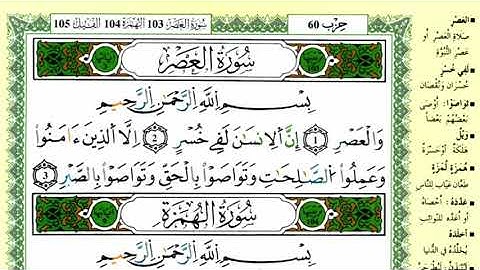 حِزْب 60
سُورَةُ العَصْرِ 103 الهُمَزَة 104 الفِيل 105
سُورَةُ العَصْرِ
بِسْمِ اللَّهِ الرَّحْمَٰنِ الرَّحِيمِ
وَالْعَصْرِ 1 إِنَّ الْإِنسَانَ لَفِي خُسْرٍ 2 إِلَّا الَّذِينَ ءَامَنُوا
وَعَمِلُوا الصَّالِحَاتِ وَتَوَاصَوْا بِالْحَقِّ وَتَوَاصَوْا بِالصَّبْرِ 3
سُورَةُ الهُمَزَة
بِسْمِ اللَّهِ الرَّحْمَٰنِ الرَّحِيمِ
العَصْرِ
صَلَاةِ العَصْرِ أو
عَصْرِ النُّبُوَّةِ
لَفِي خُسْرٍ
خُسْرَانٍ وَنُقْصَانٍ
تَوَاصَوْا: أَوْصَى
بَعْضُهُمْ بَعْضاً
وَيْلٌ
هَلَكَةٌ أو حَسْرَةٌ
هُمَزَةٍ لُمَزَةٍ
طَعَّانٍ عَيَّابٍ لِلنَّاسِ
عَدَّدَهُ: أَحْصَاهُ
أو أَعَدَّهُ لِلنَّوَائِبِ
أَخْلَدَهُ
يُخَلِّدُهُ فِي الدُّنْيَا